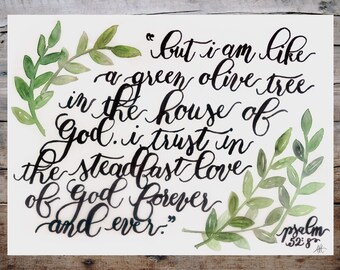 "but i am like
a green olive tree
in the house of
God. i trust in
the steadfast love
of God forever
and ever."
psalm
52:8